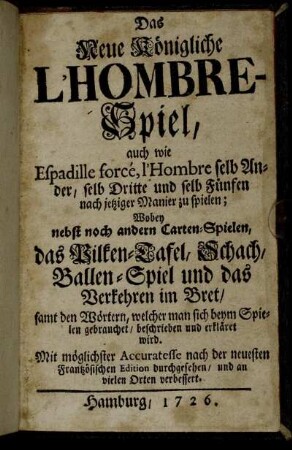 Das
Neue Königliche
L'HOMBRE-
Spiel,
auch wie
Espadille forcé, l'Hombre selb An-
der, selb Dritte und selb Fünfen
nach jetziger Manier zu spielen;
Wobey
nebst noch andern Carten-Spielen,
das Pilken-Tafel, Schach/
Ballen-Spiel und das
Verkehren im Bret/
samt den Wörtern, welcher man sich beym Spie-
len gebrauchet/ beschrieben und erkläret
wird.
Mit möglichster Accuratesse nach der neuesten
Frantzösischen Edition durchgesehen/ und an
vielen Orten verbessert.
Hamburg, 1726.